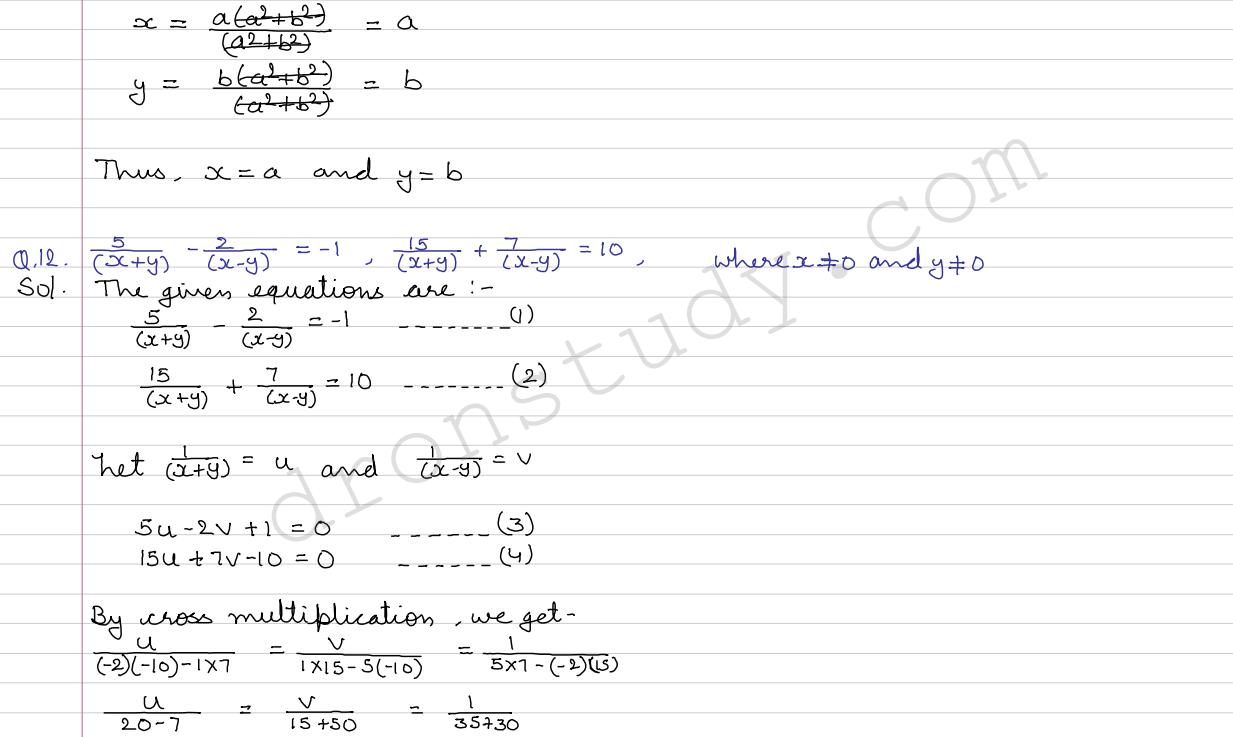 x = a(a²+b²)/(a²+b²) = a
y = b(a²+b²)/(a²+b²) = b
Thus, x = a and y = b
Q.12. 5/(x+y) - 2/(x-y) = -1, 15/(x+y) + 7/(x-y) = 10, where x≠0 and y≠0
Sol. The given equations are :-
5/(x+y) - 2/(x-y) = -1 --------(1)
15/(x+y) + 7/(x-y) = 10 --------(2)
Let 1/(x+y) = u and 1/(x-y) = v
5u-2v+1 = 0 ------(3)
15u+7v-10 = 0 ------(4)
By cross multiplication, we get-
u/((-2)(-10)-1×7) = v/(1×15-5(-10)) = 1/(5×7-(-2)(15))
u/(20-7) = v/(15+50) = 1/(35+30)
dronstudy.com